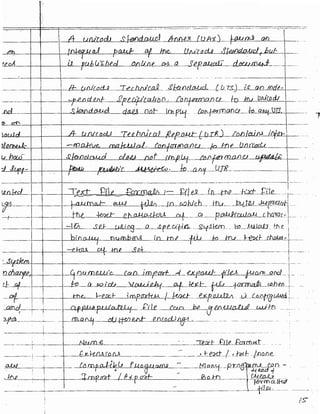 A Unicode Standard Annex (UAX) forms an
integral part of the Unicode Standard, but
is published online as a separate document.
A Unicode Technical Standard (UTS) is an inde-
pendent specification. Conformance to the Unicode
standard does not imply conformance to any UTS.
A Unicode Technical Report (UTR) contains infor-
mative material. Conformance to the Unicode
Standard does not imply conformance
to any UTR
Text File Formats :- Files in the text file
format are files in which the bytes represent
the text characters of a particular charac-
ter set using a specific system to relate the
binary numbers in the file to the text charac-
ters of the set.
Gnumeric can import & export files from and
to a wide variety of text file formats when
the text importer / text exporter is configured
appropriately. File can be generated with
many different encodings.
Name Text File Format
Extensions .text / .txt /none
Compatible Programs Many programs can
Import / Export Both
15